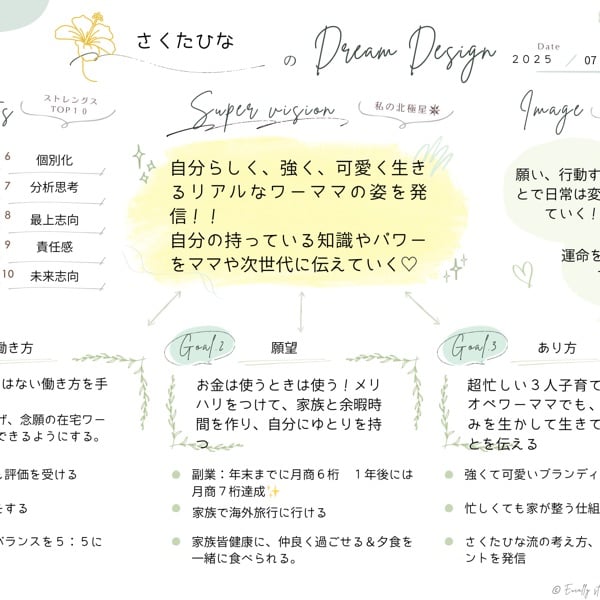 さくたひな の Dream Design
Date
2025 / 07
ts
ストレングス
TOP10
Super vision
私の北極星
Image
6 個別化
7 分析思考
8 最上志向
9 責任感
10 未来志向
自分らしく、強く、可愛く生き
るリアルなワーママの姿を発
信！！
自分の持っている知識やパワー
をママや次世代に伝えていく♡
願い、行動す
とで日常は変
ていく！
運命を
働き方
はない働き方を手
げ、念願の在宅ワー
できるようにする。
し評価を受ける
をする
バランスを５：５に
Goal 2
願望
お金は使うときは使う！メリ
ハリをつけて、家族と余暇時
間を作り、自分にゆとりを持
つ
副業：年末までに月商６桁　１年後には
月商７桁達成✨
家族で海外旅行に行ける
家族皆健康に、仲良く過ごせる＆夕食を
一緒に食べられる。
Goal 3
あり方
超忙しい３人子育て
オペワーママでも、
みを生かして生きて
とを伝える
強くて可愛いブランディ
忙しくても家が整う仕組
さくたひな流の考え方、
ントを発信